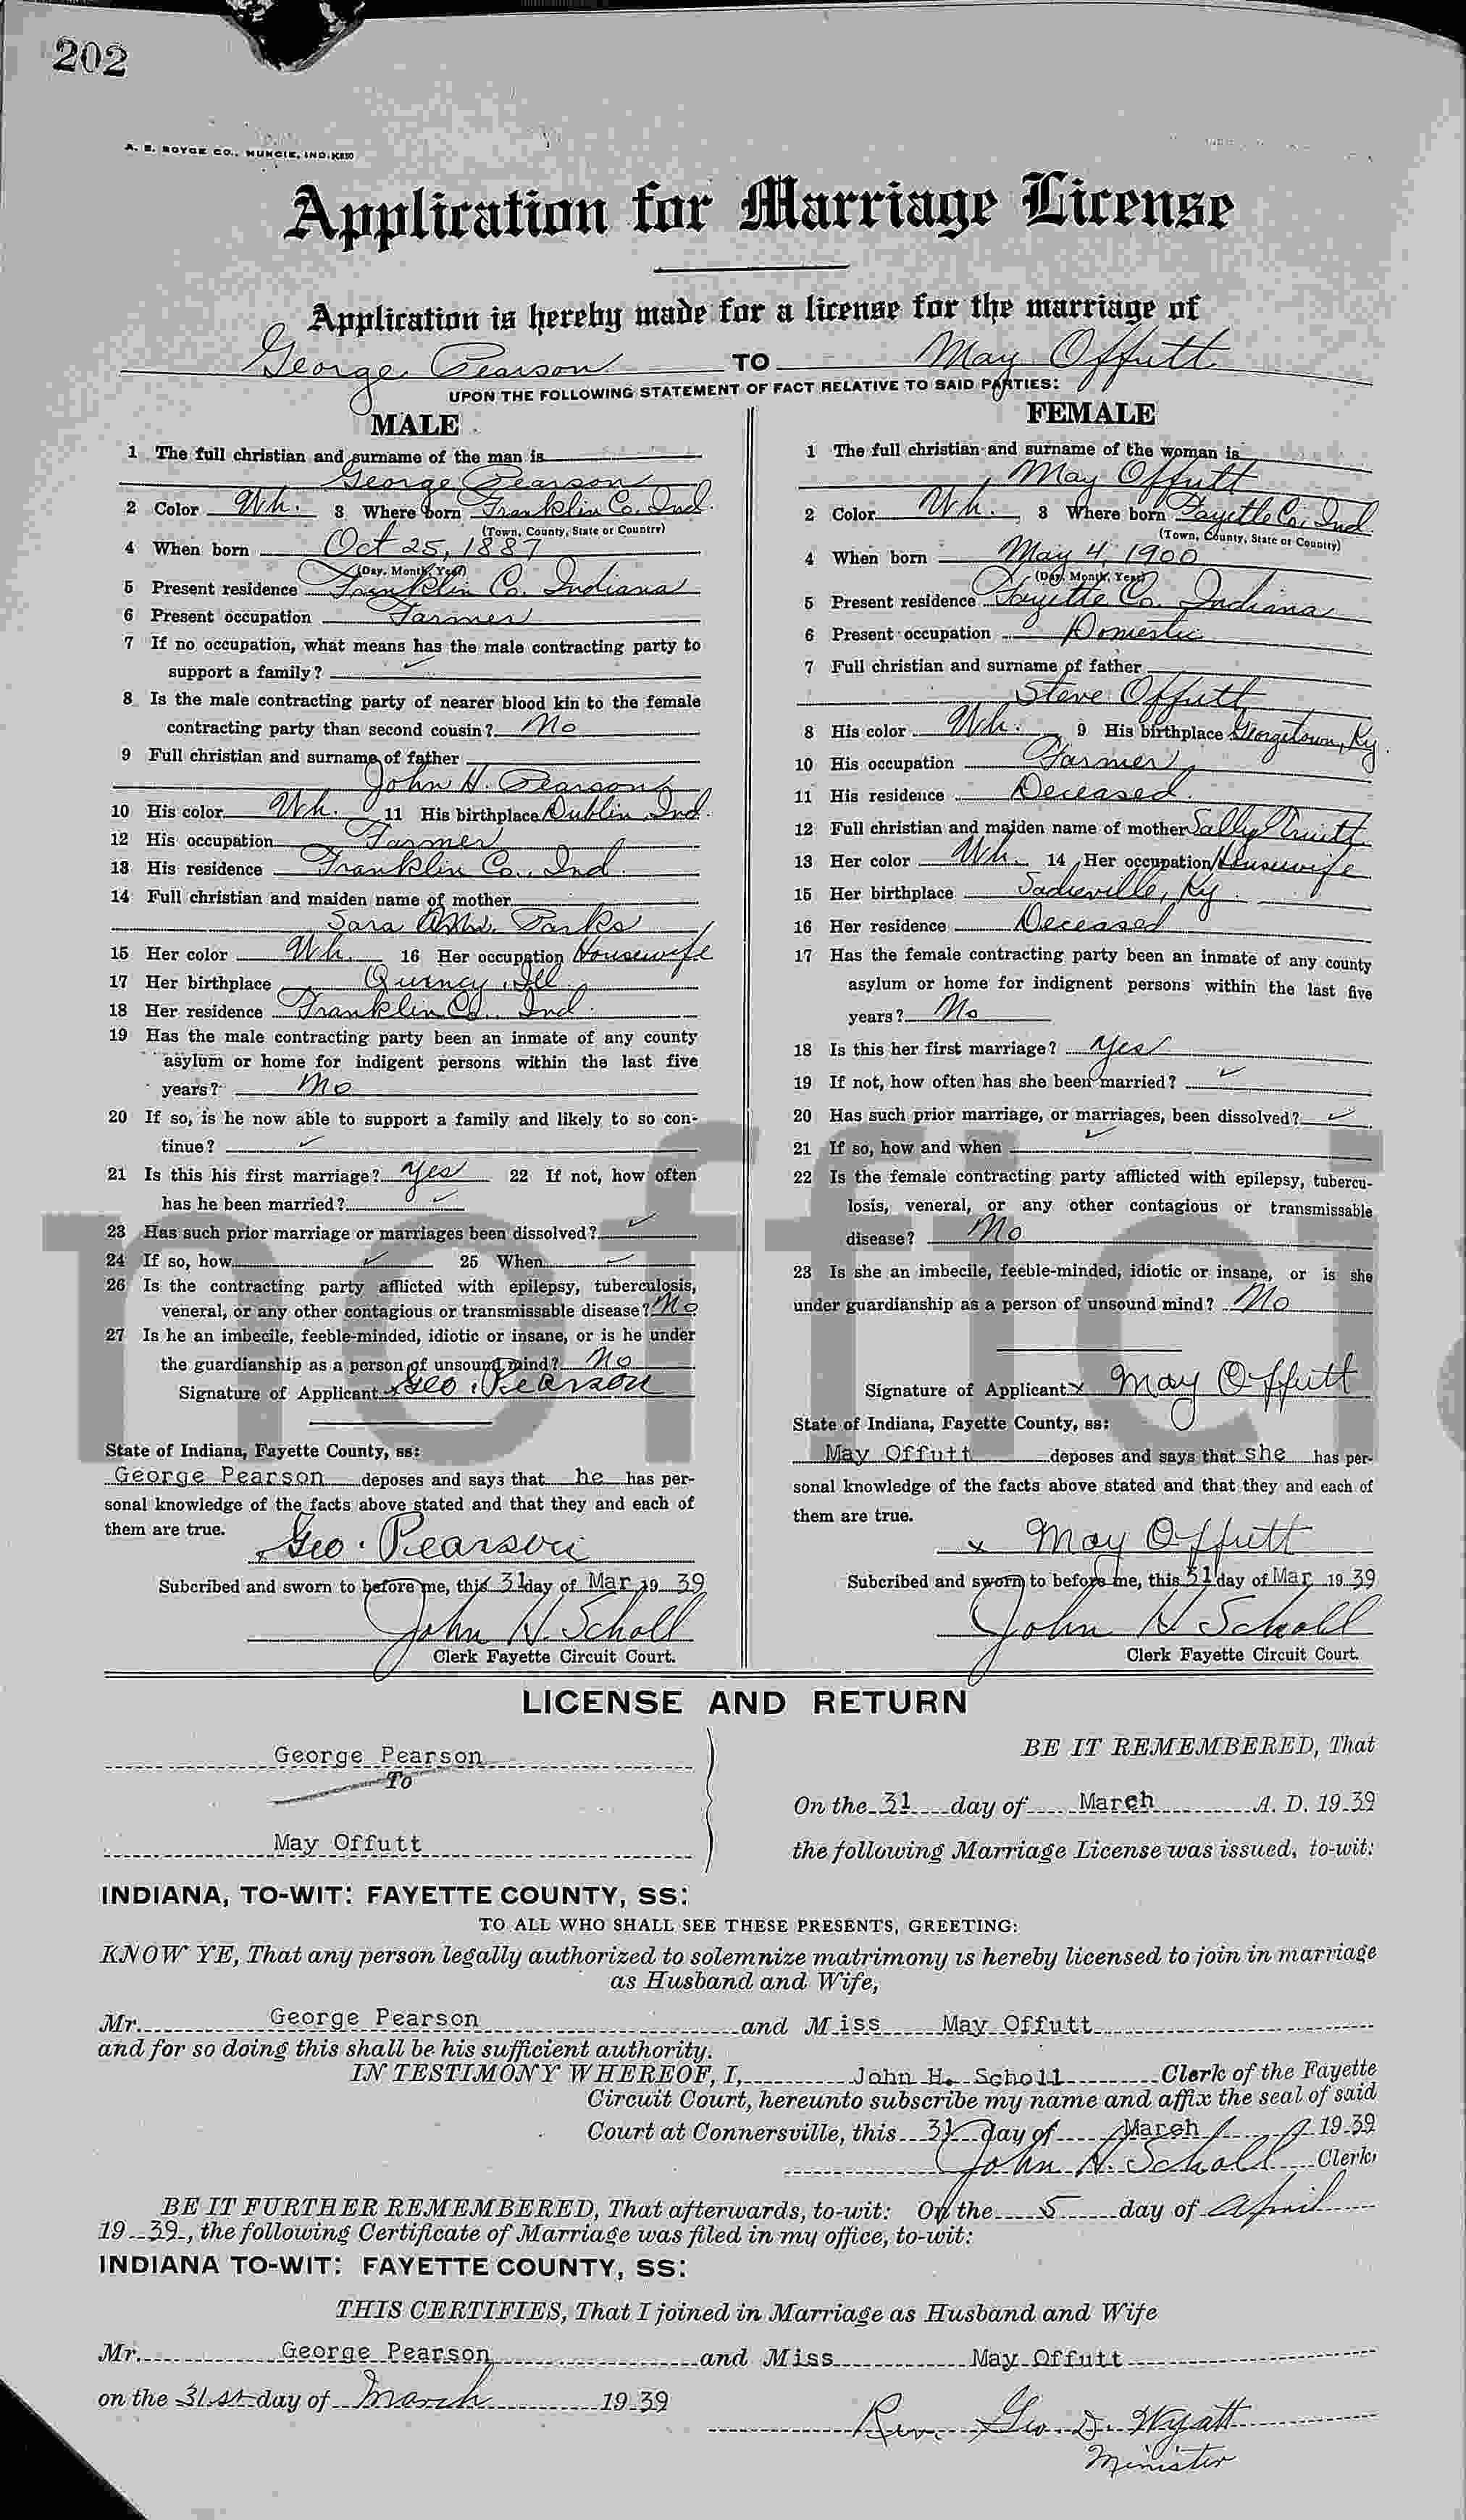 202
A. E. BOYCE CO., MUNCIE, IND. K830
Application for Marriage License
Application is hereby made for a license for the marriage of
George Pearson TO May Offutt
UPON THE FOLLOWING STATEMENT OF FACT RELATIVE TO SAID PARTIES:
MALE
1 The full christian and surname of the man is
George Pearson
2 Color Wh. 3 Where born Franklin Co. Ind.
(Town, County, State or Country)
4 When born Oct 25, 1887
(Day, Month, Year)
5 Present residence Franklin Co. Indiana
6 Present occupation Farmer
7 If no occupation, what means has the male contracting party to
support a family? ✓
8 Is the male contracting party of nearer blood kin to the female
contracting party than second cousin? No
9 Full christian and surname of father
John H. Pearson
10 His color Wh. 11 His birthplace Dublin, Ind.
12 His occupation Farmer
13 His residence Franklin Co., Ind.
14 Full christian and maiden name of mother
Sara Ann Parks
15 Her color Wh. 16 Her occupation Housewife
17 Her birthplace Quincy, Ill
18 Her residence Franklin Co. Ind.
19 Has the male contracting party been an inmate of any county
asylum or home for indigent persons within the last five
years? No
20 If so, is he now able to support a family and likely to so con-
tinue? ✓
21 Is this his first marriage? Yes 22 If not, how often
has he been married? ✓
23 Has such prior marriage or marriages been dissolved? ✓
24 If so, how ✓ 25 When ✓
26 Is the contracting party afflicted with epilepsy, tuberculosis,
veneral, or any other contagious or transmissable disease? No
27 Is he an imbecile, feeble-minded, idiotic or insane, or is he under
the guardianship as a person of unsound mind? No
Signature of Applicant x Geo. Pearson
State of Indiana, Fayette County, ss:
George Pearson deposes and says that he has per-
sonal knowledge of the facts above stated and that they and each of
them are true.
x Geo. Pearson
Subcribed and sworn to before me, this 31 day of Mar 19 39
John H. Scholl
Clerk Fayette Circuit Court.
FEMALE
1 The full christian and surname of the woman is
May Offutt
2 Color Wh. 3 Where born Fayette Co., Ind.
(Town, County, State or Country)
4 When born May 4, 1900
(Day, Month, Year)
5 Present residence Fayette Co. Indiana
6 Present occupation Domestic
7 Full christian and surname of father
Steve Offutt
8 His color Wh. 9 His birthplace Georgetown, Ky.
10 His occupation Farmer
11 His residence Deceased.
12 Full christian and maiden name of mother Sally Truitt
13 Her color Wh. 14 Her occupation Housewife
15 Her birthplace Sadieville, Ky.
16 Her residence Deceased
17 Has the female contracting party been an inmate of any county
asylum or home for indignent persons within the last five
years? No
18 Is this her first marriage? Yes
19 If not, how often has she been married? ✓
20 Has such prior marriage, or marriages, been dissolved? ✓
21 If so, how and when ✓
22 Is the female contracting party afflicted with epilepsy, tubercu-
losis, veneral, or any other contagious or transmissable
disease? No
23 Is she an imbecile, feeble-minded, idiotic or insane, or is she
under guardianship as a person of unsound mind? No
Signature of Applicant x May Offutt
State of Indiana, Fayette County, ss:
May Offutt deposes and says that she has per-
sonal knowledge of the facts above stated and that they and each of
them are true.
x May Offutt
Subcribed and sworn to before me, this 31 day of Mar 19 39
John H Scholl
Clerk Fayette Circuit Court.
LICENSE AND RETURN
George Pearson
To
May Offutt
BE IT REMEMBERED, That
On the 31 day of March A. D. 19 39
the following Marriage License was issued, to-wit:
INDIANA, TO-WIT: FAYETTE COUNTY, SS:
TO ALL WHO SHALL SEE THESE PRESENTS, GREETING:
KNOW YE, That any person legally authorized to solemnize matrimony is hereby licensed to join in marriage
as Husband and Wife,
Mr. George Pearson and Miss May Offutt
and for so doing this shall be his sufficient authority.
IN TESTIMONY WHEREOF, I, John H. Scholl Clerk of the Fayette
Circuit Court, hereunto subscribe my name and affix the seal of said
Court at Connersville, this 31 day of March 19 39
John H. Scholl Clerk
BE IT FURTHER REMEMBERED, That afterwards, to-wit: On the 5 day of April
19 39, the following Certificate of Marriage was filed in my office, to-wit:
INDIANA TO-WIT: FAYETTE COUNTY, SS:
THIS CERTIFIES, That I joined in Marriage as Husband and Wife
Mr. George Pearson and Miss May Offutt
on the 31st day of March 19 39
Rev. Geo. D. Wyatt
Minister
noffici